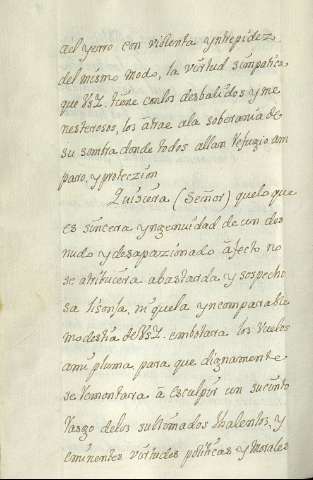 al yerro con violenta yntrepidez
del mismo modo, la virtud simpatica
que VsI. tiene conlos desbalidos y me
nesterosos, los àtrae ala soberania de
su sombra donde todos allan Refugio am
paro, y protezzion
Quisiera (Señor) quelo que
es sincera yngenuidad de un des
nudo y desapazzionado àfecto no
se atribuiera abastarda y sospecho
sa lisonja, ni quela yncomparable
modestia de VsI. embotara los buelos
ami pluma, para que dignamente
se remontara à Esculpir un sucinto
Rasgo delos sublimados thalentos, y
eminentes virtudes politicas y Morales